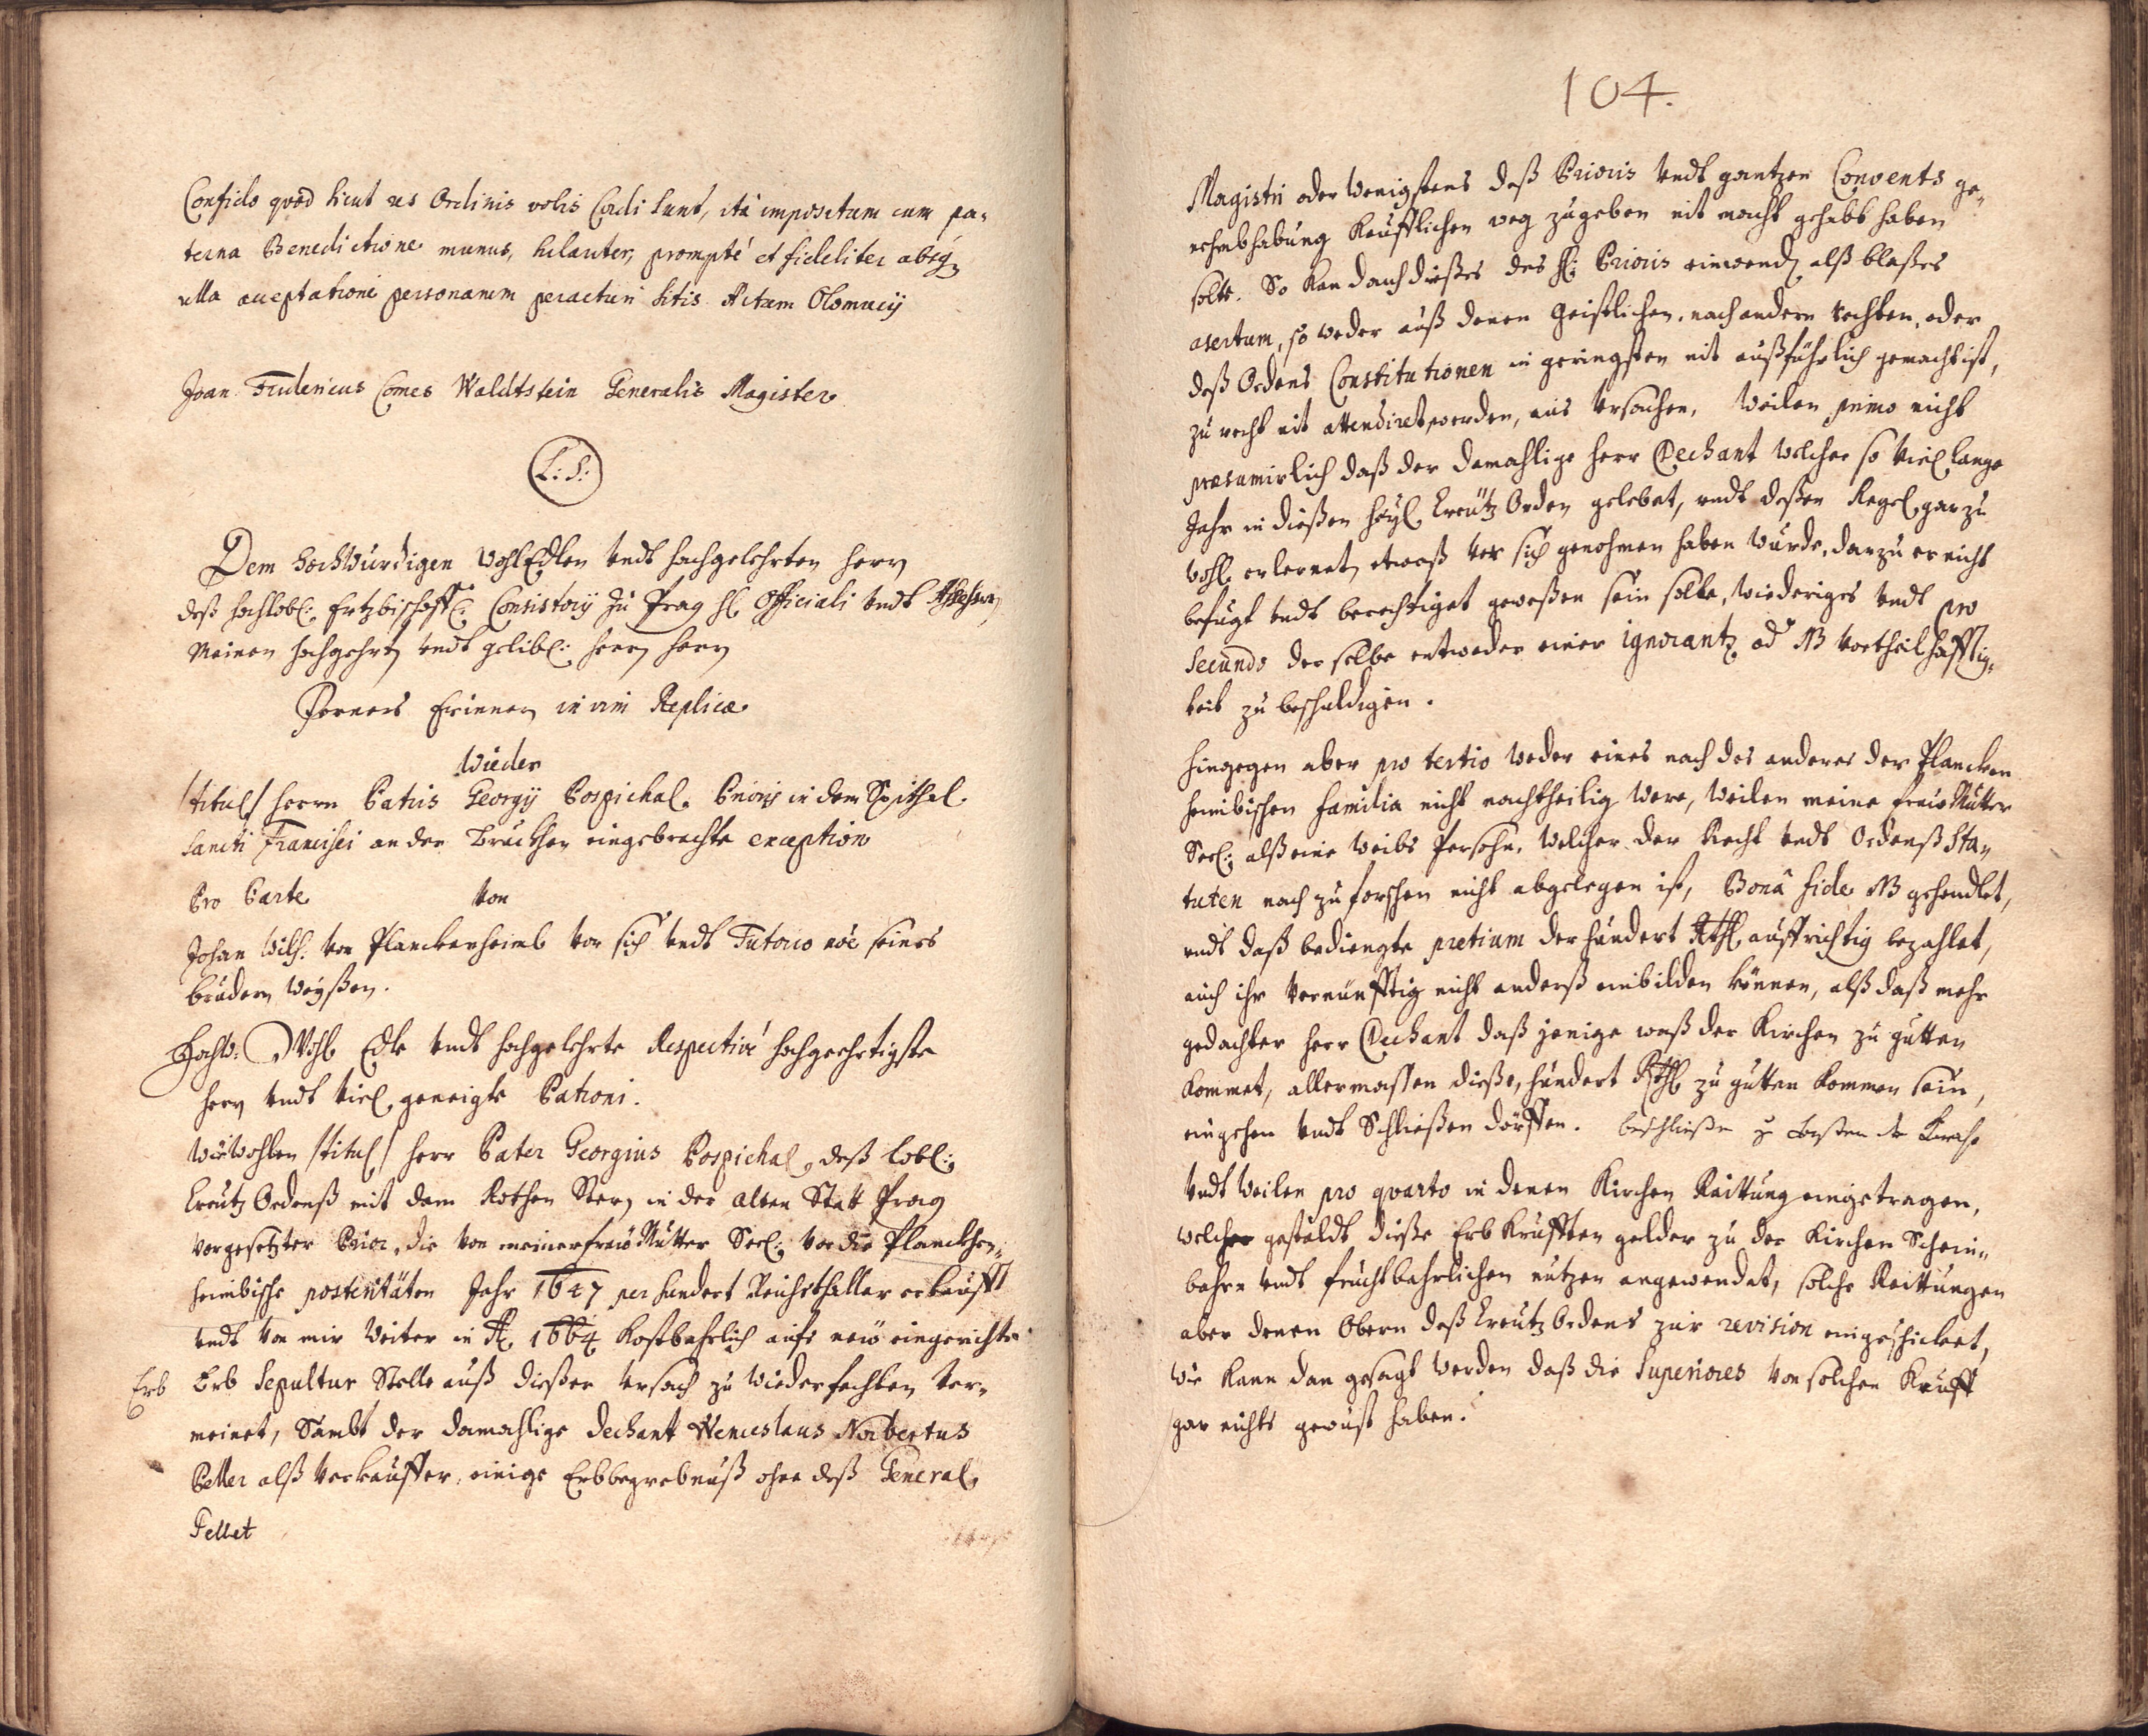 Confido quod sicut res Ordinis vobis Cordi sunt, ità impositum cum pa-
terna Benedictione munus, hilariter, prompté et fideliter absq
ulla acceptatione personarum peracturi sitis Actum Olomucÿ
Joan Fridericus Comes Waldtstein Generalis Magister
L: S:
Dem HochWürdigen WohlEdlen undt hochgelehrten Herrn
deß hochlobl: Ertzbischoffl: Consistorij zu Prag H: Officiali undt Assessorn
Meinen hochgehrten undt gelibl: Herrn Herrn
Ferners Erinnern in vim Replicæ
Wieder
/titul/ Herrn Patris Georgij Pospichal. Prioris in dem Spithal
Sancti Francisci an der Bruckhen eingebrachte exception
Pro Parte von
Johan Wilh: von Planckenheimb vor sich undt Tutorio noê seiners
Brudern Weyßen.
Hoch: Wohl Edle undt hochgelehrte Respectivé hochgeehrtigste
Herrn undt viel geneigte Patroni.
Wiewohlen /titul/ Herr Pater Georgius Pospichal, deß lobl:
Creutz Ordenß mit dem Rothen Stern in der alten Statt Prag
vorgesetzter Prior, die von meiner fraw Mutter Seel: vor die Planckhen-
heimbische posteritäten Jahr 1647 per hundert Reichsthaller erkaufft
undt von mir Weiter in A. 1664 Kostbahrlich aufs new eingerichte
Erb Erb Sepultur Stelle auß dießer Ursach zu wiederfechten ver-
meinet, Sambt der damahlige Dechant Wenceslaus Norbertus
Peller alß verkauffer, einige Erbbegrebnuß ohne deß General
Pellet
104.
Magistri oder wenigstens deß Prioris undt gantzen Convents ge-
nehmbhabung Keufflichen weg zugeben nit macht gehabt haben
solte. So Kan doch dießes des H: Prioris einwend, alß bloßes
asertum, so weder auß denen Geistlichen, noch andern rechten, oder
deß Ordens Constitutionen in geringsten nit außführlich gemacht ist,
zu recht nit attendiret werden, auß Ursachen, Weilen primo nicht
præsumirlich daß der damahlige Herr Dechant welcher so viel lange
Jahr in dießen heyl Creutz Orden gelebet, undt deßen Regel gar zu
wohl erlernet, etwaß vor sich genohmen haben wurde, darzu er nicht
befugt undt berechtiget geweßen sein solte, wiederiges undt pro
Secundo derselbe entweder einer ignorantz od NB vortheilhafftig-
keit zu beschuldigen.
Hingegen aber pro tertio weder eines noch des anderes der Plancken
heimbischen familia nicht nachtheilig were, weilen meine fraw Mutter
Seel: alß eine Weibs Persohn, welcher der Recht undt Ordenß Sta-
tuten nach zu forschen nicht abgelegen ist, Bonâ fide NB gehandlet,
undt daß bedingte pretium der hundert Rthl auffrichtig bezahlet,
auch ihr vernünfftig nicht anderß einbilden können, alß daß mehr
gedachter Herr Dechant daß jenige waß der Kirchen zu gutten
kommet, allermassen dieße, hundert Rthl zu gutten kommen sein,
eingehen undt Schließen dörffen. beschließen z besten der Kirche
Undt weilen pro qvarto in denen Kirchen Raittung eingetragen,
welcher gestaldt dieße Erb Krufften gelder zu der Kirchen Schein-
bahrn undt fruchtbahrlichen nutzen angewendet, solche Raittungen
aber denen Obern deß Creutz Ordens zur revision eingeschicket,
wie kann dan gesagt werden daß die Superiores von solchen Krufft
gar nichts gewust haben.